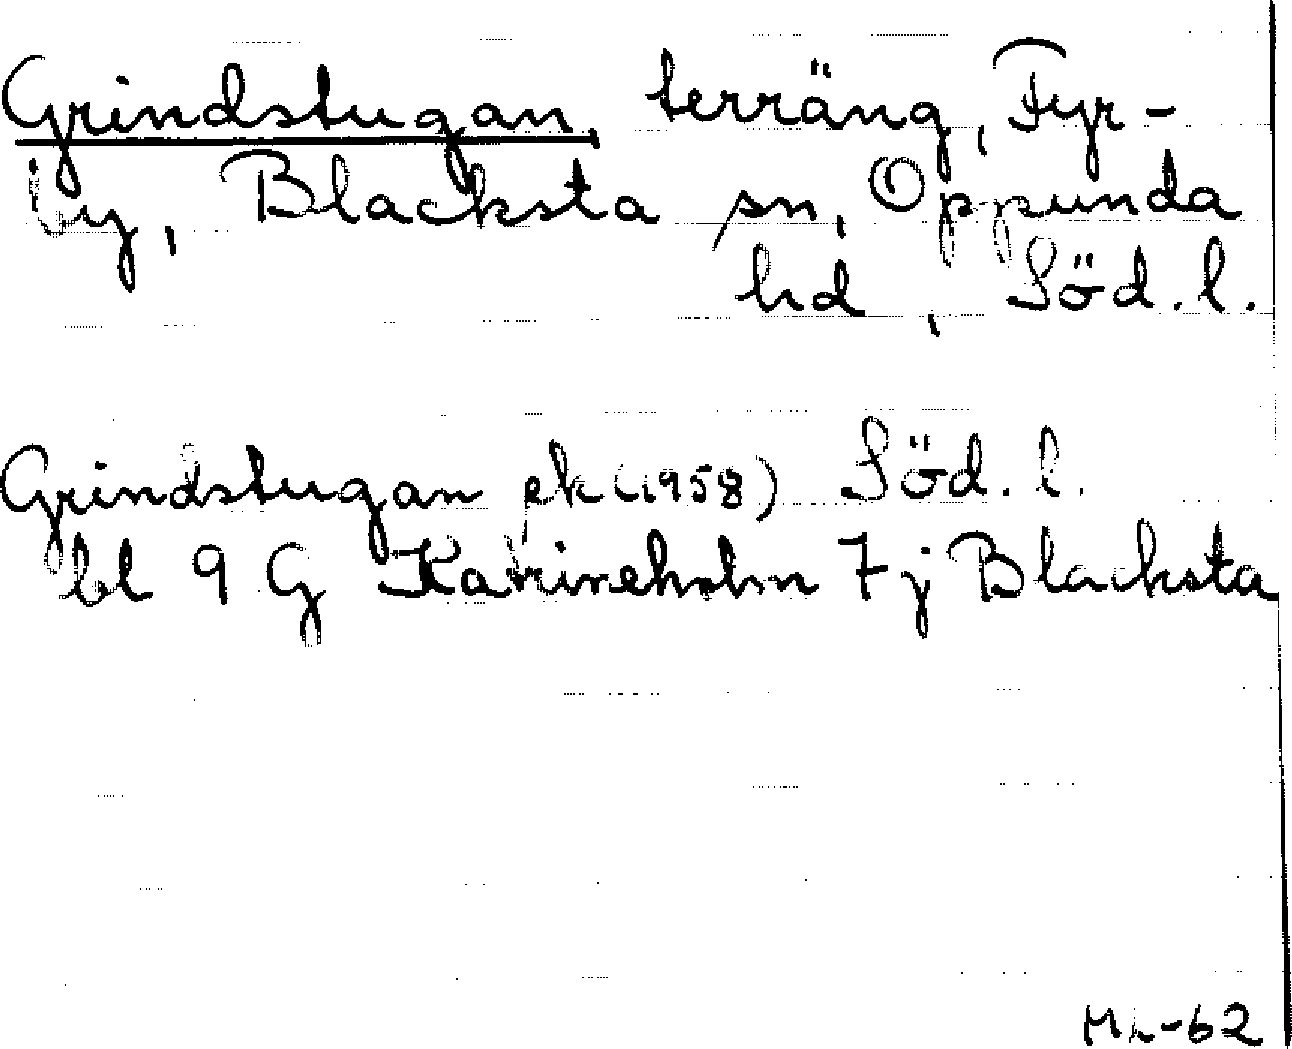 Grindstugan, terräng, Fyr-
by, Blacksta sn, Oppunda
hd, Söd. l.
Grindstugan ek (1958) Söd. l.
bl 9 G Katrineholm 7 j Blacksta
-62